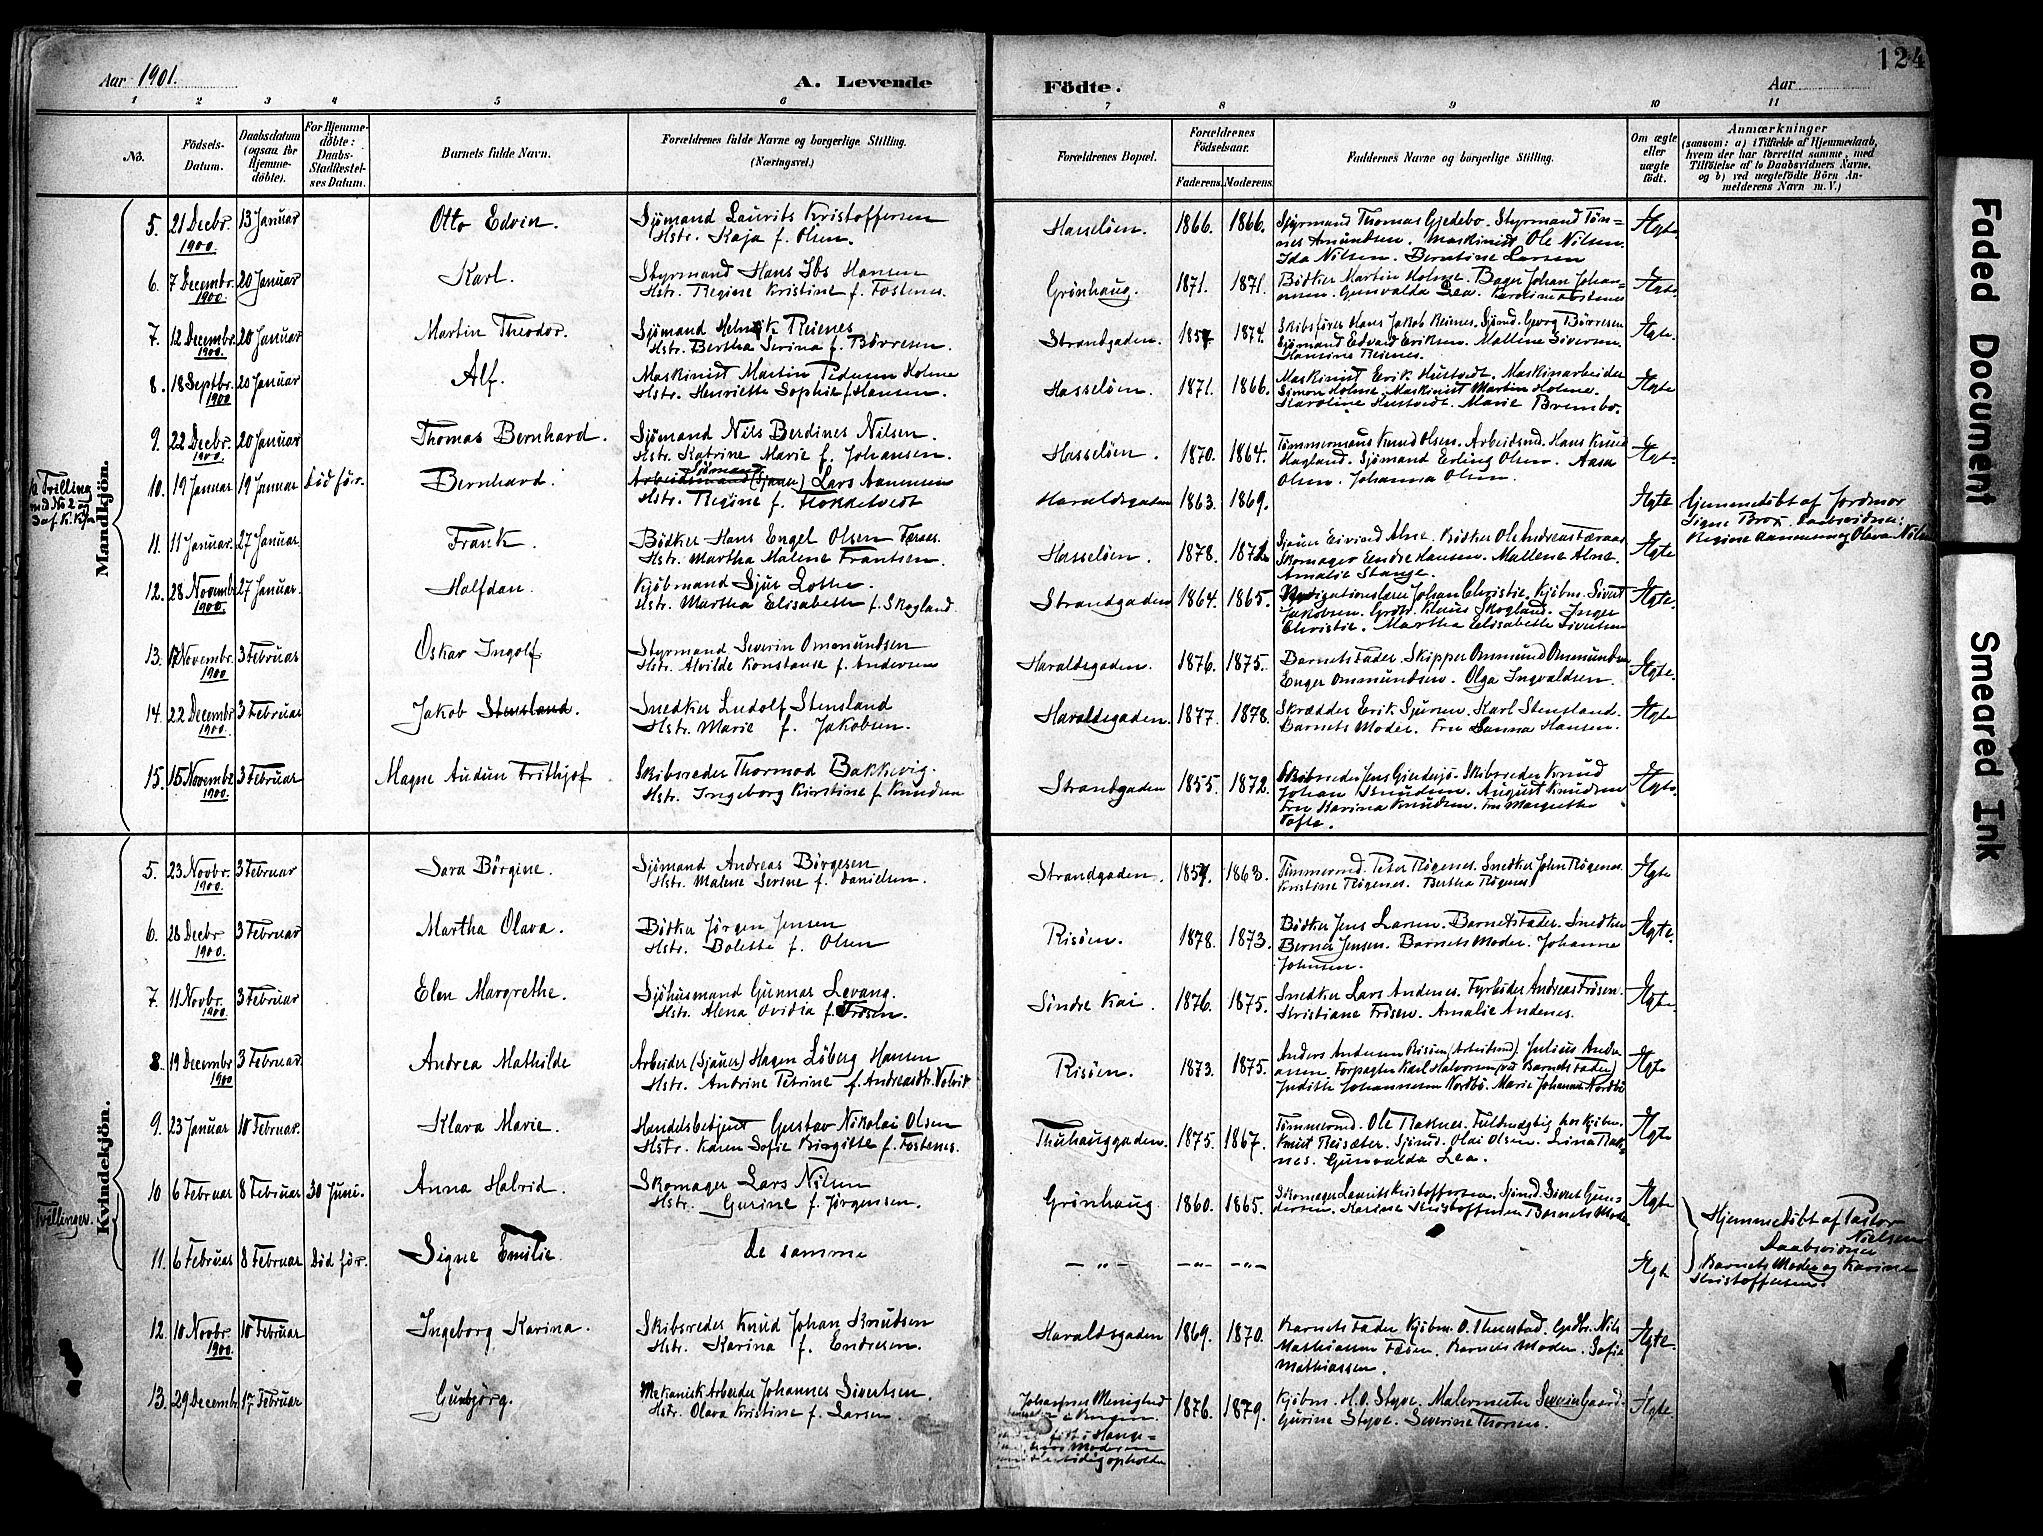 124
Aar 1901.
A. Levende
Födte.
Aar
1 2 3 4 5 6 7 8 9 10 11
No.
Födsels-Datum.
Daabsdatum (ogsaa for Hjemme-döbte).
For Hjemme-döbte: Daabs-Stadfæstel-ses Datum.
Barnets fulde Navn.
Forældrenes fulde Navne og borgerlige Stilling.
(Næringsvei.)
Forældrenes Bopæl.
Forældrenes Födselsaar.
Faderens. Moderens.
Faddernes Navne og borgerlige Stilling.
Om ægte eller uægte födt.
Anmærkninger
(saasom: a) i Tilfælde af Hjemmedaab, hvem der har forrettet samme, med Tilföielse af to Daabsvidners Navne, og b) ved uægtefödte Börn An-melderens Navn m. V.)
Mandkjön.
5. 21 Decbr. 1900. 13 Januar Otto Edvin. Sjömand Laurits Kristoffersen
Hstr. Kaja f. Olsen. Hasseløen. 1866. 1866. Styrmand Thomas Gjedebo. Styrmand Tøn=
nes Amundsen. Maskinist Ole Nilsen.
Ida Nilsen. Berntine Larsen Ægte.
6. 7 Decembr. 1900. 20 Januar Karl. Styrmand Hans Ibs Hansen
Hstr. Regine Kristine f. Fostenes. Grønhaug. 1871. 1871. Bødker Martin Holme. Bager Johan Johan=
nesen. Gunvalda Lea. Ægte.
7. 12 Decembr. 1900. 20 Januar Martin Theodor. Sjömand Henrik Reienes
Hstr. Bertha Serina f. Börresen. Strandgaden. 1857. 1874. Skibsfører Hans Jakob Reienes. Sjömd. Georg Börresen
Sjömand Edvard Eriksen. Mallene Siversen.
Hansine Reienes. Ægte.
8. 18 Septbr. 1900 20 Januar Alf. Maskinist Martin Pedersen Holme
Hstr. Henriette Sophie f. Hansen. Hasseløen. 1871. 1866. Maskinist Erik Hustvedt. Maskinarbeider
Simon Holme. Maskinist Martin Holme.
Karoline Hustvedt. Marie Brembo. Ægte
9. 22 Decbr. 1900. 20 Januar Thomas Bernhard. Sjömand Nils Berdines Nilsen.
Hstr. Katrine Marie f. Johansen. Hasseløen. 1870. 1864. Tømmermand Knud Olsen. Arbeidsmd. Hans Knud
Hagland. Sjömand Erling Olsen. Aasa
Olsen. Johanna Olsen. Ægte.
Trilling med No 2 og 3 af K. Kjn
10. 19 Januar 19 Januar Död för. Bernhard. Sjömand
Arbeidsmand (Sjauer) Lars Aamnesen
Hstr. Regine f. Flokketvedt Haraldsgaden 1863. 1869. Ægte Hjemmedøbt af Jordmor
Signe Brox. Daabsvidner:
Regine Aamnesen og Olava Nilsen
11. 11 Januar. 27 Januar. Frank. Bødker Hans Engel Olsen Færaas.
Hstr. Martha Malene Frantsen. Hasseløen. 1878. 1872 Sjauer Eivind Alne. Bødker Ole Andreas Færaas
Skomager Endre Hansen. Mallene Alne.
Amalie Stange. Ægte
12. 28 Novembr. 1900. 27 Januar. Halfdan. Kjöbmand Sjur Lothe.
Hstr. Martha Elisabeth f. Skogland. Strandgaden 1864. 1865. Navigationslærer Johan Christie. Kjöbm. Sivert
Jakobsen. Grdbr. Klaus Skogland. Inger
Christie. Martha Elisabeth Sivertsen Ægte.
13. 17 Novembr. 1900 3 Februar Oskar Ingolf Styrmand Severin Omundsen
Hstr. Alvilde Konstanse f. Andersen Haraldsgaden. 1876. 1875. Barnets Fader. Skipper Ommund Ommundsen
Enger Ommundsen. Olga Ingvaldsen. Ægte.
14. 22 Decembr 1900. 3 Februar Jakob Stensland. Snedker Ludolf Stensland
Hstr. Marie f. Jakobsen. Haraldsgaden. 1877. 1878. Skrædder Erik Sjursen. Karl Stensland.
Barnets Moder. Fru Lanna Hansen. Ægte
15. 15 Novembr 1900. 3 Februar Magne Audun Frithjof Skibsreder Thormod Bakkevig.
Hstr. Ingeborg Kirstine f. Knudsen Strandgaden 1855. 1872. Skibsreder Jens Gjerdesjö. Skibsreder Knud
Johan Knudsen. August Knudsen
Fru Karina Knudsen. Fru Margrethe
Tofte. Ægte.
Kvindekjön.
5. 23 Novbr. 1900. 3 Februar Sara Börgine. Sjömand Andreas Börgesen
Hstr. Malene Serine f. Danielsen. Strandgaden. 1857. 1863. Tömmermd. Peter Røgenes. Snedker John Røgenes.
Kristine Røgenes. Bertha Røgenes. Ægte
6. 28 Decbr 1900. 3 Februar Martha Olava. Bødker Jørgen Jensen
Hstr. Bolette f. Olsen Risøen. 1878. 1873. Bødker Jens Larsen. Barnets Fader. Snedker
Berner Jensen. Barnets Moder. Johanne
Johnsen. Ægte.
7. 11 Novbr. 1900 3 Februar Elen Margrethe. Sjöhusmand Gunnar Levang.
Hstr. Alena Ovidia f. Frösen. Søndre Kai 1876. 1875. Snedker Lars Andenes. Fyrbøder Andreas Frösen.
Kristiane Frösen. Amalie Andenes. Ægte.
8. 19 Decembr 1900 3 Februar. Andrea Mathilde Arbeider (Sjauer) Hagen Løberg Hansen
Hstr. Andrine Petrine f. Andreasdtr. Velvik Risøen. 1873. 1875. Anders Andersen Risøen (Arbeidsmd). Julius Andre
asen. Forpagter Karl Halvorsen (via Barnets Fader)
Judith Johannesen Nordbö. Marie Johannes. Nordbö Ægte
9. 23 Januar 10 Februar. Klara Marie. Handelsbetjent Gustav Nikolai Olsen
Hstr. Karen Sofie Birgitte f. Fostenes. Thuhauggaden. 1875. 1867. Tömmermd. Ole Raknes. Fuldmægtig hos Kjöbm.
Knut Reisæter. Sjömd. Olai Olsen. Lina Rak
nes. Gunvalda Lea. Ægte
Tvillinger.
10 6 Februar 8 Februar 30 Juni. Anna Halvid. Skomager Lars Nilsen
Hstr. Gurine f. Jörgensen. Grønhaug. 1860. 1865. Skomager Laurits Kristoffersen. Sjömd. Sivert Gun=
dersen. Karine Kristoffersen Barnets Moder. Ægte Hjemmedøbt af Pastor
Nielsen
Daabsvidner
Barnets Moder og Karine
Kristoffersen.
11. 6 Februar 8 Februar Död för. Signe Emilie. de samme — „ — — „ — — „ — Ægte
12. 10 Novbr. 1900. 10 Februar Ingeborg Karina. Skibsreder Knud Johan Knudsen
Hstr. Karina f. Endresen. Haraldsgaden 1869. 1870. Barnets Fader Kjöbm. O. Thuestad. Grdbr. Nils
Mathiassen Fæsen. Barnets Moder. Sofie
Mathiassen. Ægte.
13. 29 Decembr 17 Februar Gunbjörg. Mekanisk Arbeider Johannes Sivertsen.
Hstr. Olava Kristine f. Larsen. 1876. 1879. Kjöbm. H.O. Styve. Malermester Severin Gaard.
Gurine Styve. Severine Thorsen. Ægte.
Faded Document
Smeared Ink